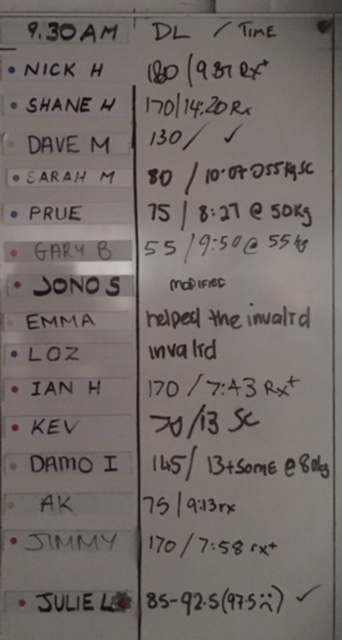 9.30AM DL / TIME
NICK H 180 / 9:37 Rx+
SHANE H 170/14:20 Rx
DAVE M 130 / ✓
SARAH M 80 / 10:07 @ 55kg SC
PRUE 75 / 8:27 @ 50kg
GARY B 55 / 9:50 @ 55kg
JONO S MODIFIED
EMMA helped the invalid
LOZ invalid
IAN H 170 / 7:43 Rx+
KEV 70/13 SC
DAMO I 145/ 13+SOME @ 80kg
AK 75 / 9:13rx
JIMMY 170 / 7:58 rx+
JULIE L 85-92.5 (97.5 ) ✓